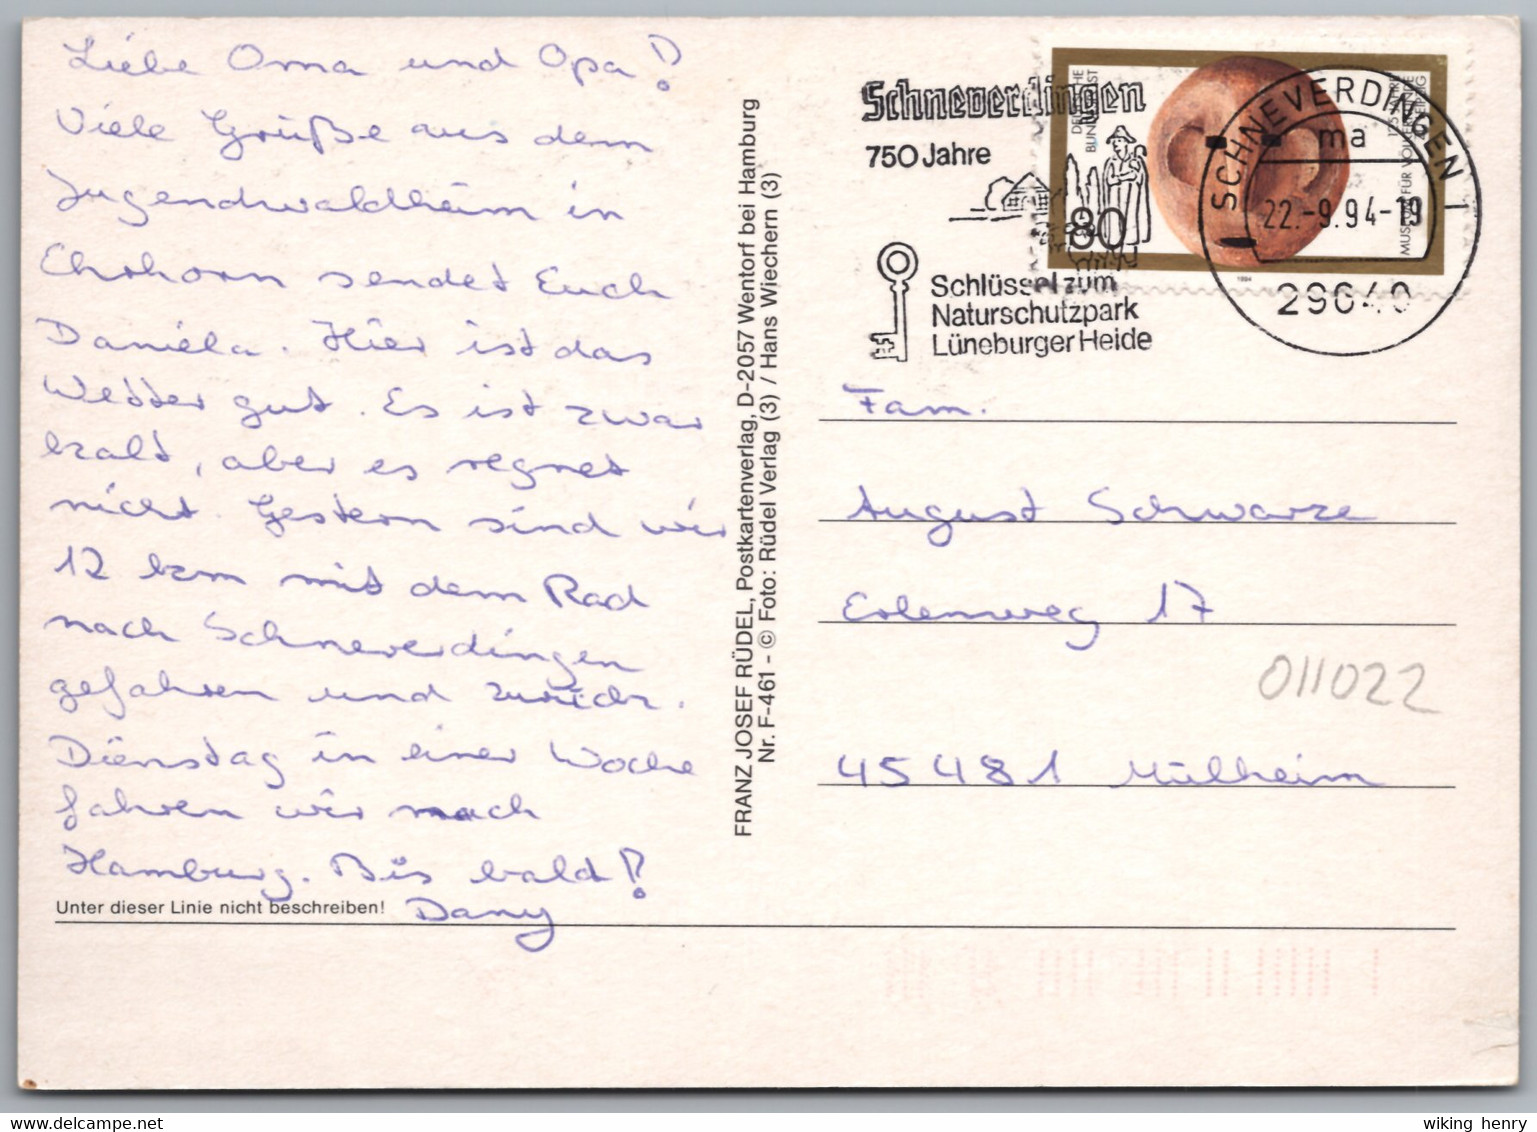 Liebe Oma und Opa!
Viele Grüße aus dem
Jugendwaldheim in
Ehrhorn sendet Euch
Daniela. Hier ist das
Wetter gut. Es ist zwar
kalt, aber es regnet
nicht. Gestern sind wir
12 km mit dem Rad
nach Schneverdingen
gefahren und zurück.
Dienstag in einer Woche
fahren wir nach
Hamburg. Bis bald!
Dany
Unter dieser Linie nicht beschreiben!
FRANZ JOSEF RÜDEL, Postkartenverlag, D-2057 Wentorf bei Hamburg
Nr. F-461 - © Foto: Rüdel Verlag (3) / Hans Wiechern (3)
Schneverdingen
750 Jahre
Schlüssel zum
Naturschutzpark
Lüneburger Heide
DEUTSCHE
BUNDESPOST
80
1994
MUSEUM FÜR VÖLKERKUNDE
SCHNEVERDINGEN 1
ma
22.-9.94-19
29640
Fam.
August Schwarze
Erlenweg 17
011022
45481 Mülheim
wiking henry